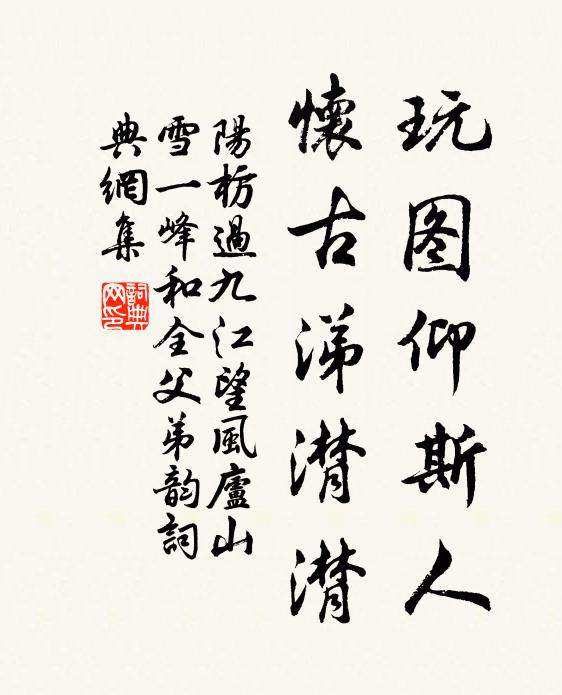 玩图仰斯人
懷古涕潸潸
陽枋過九江望風廬山
雪一峰和全父弟韵詞
典網集
詞典
网印